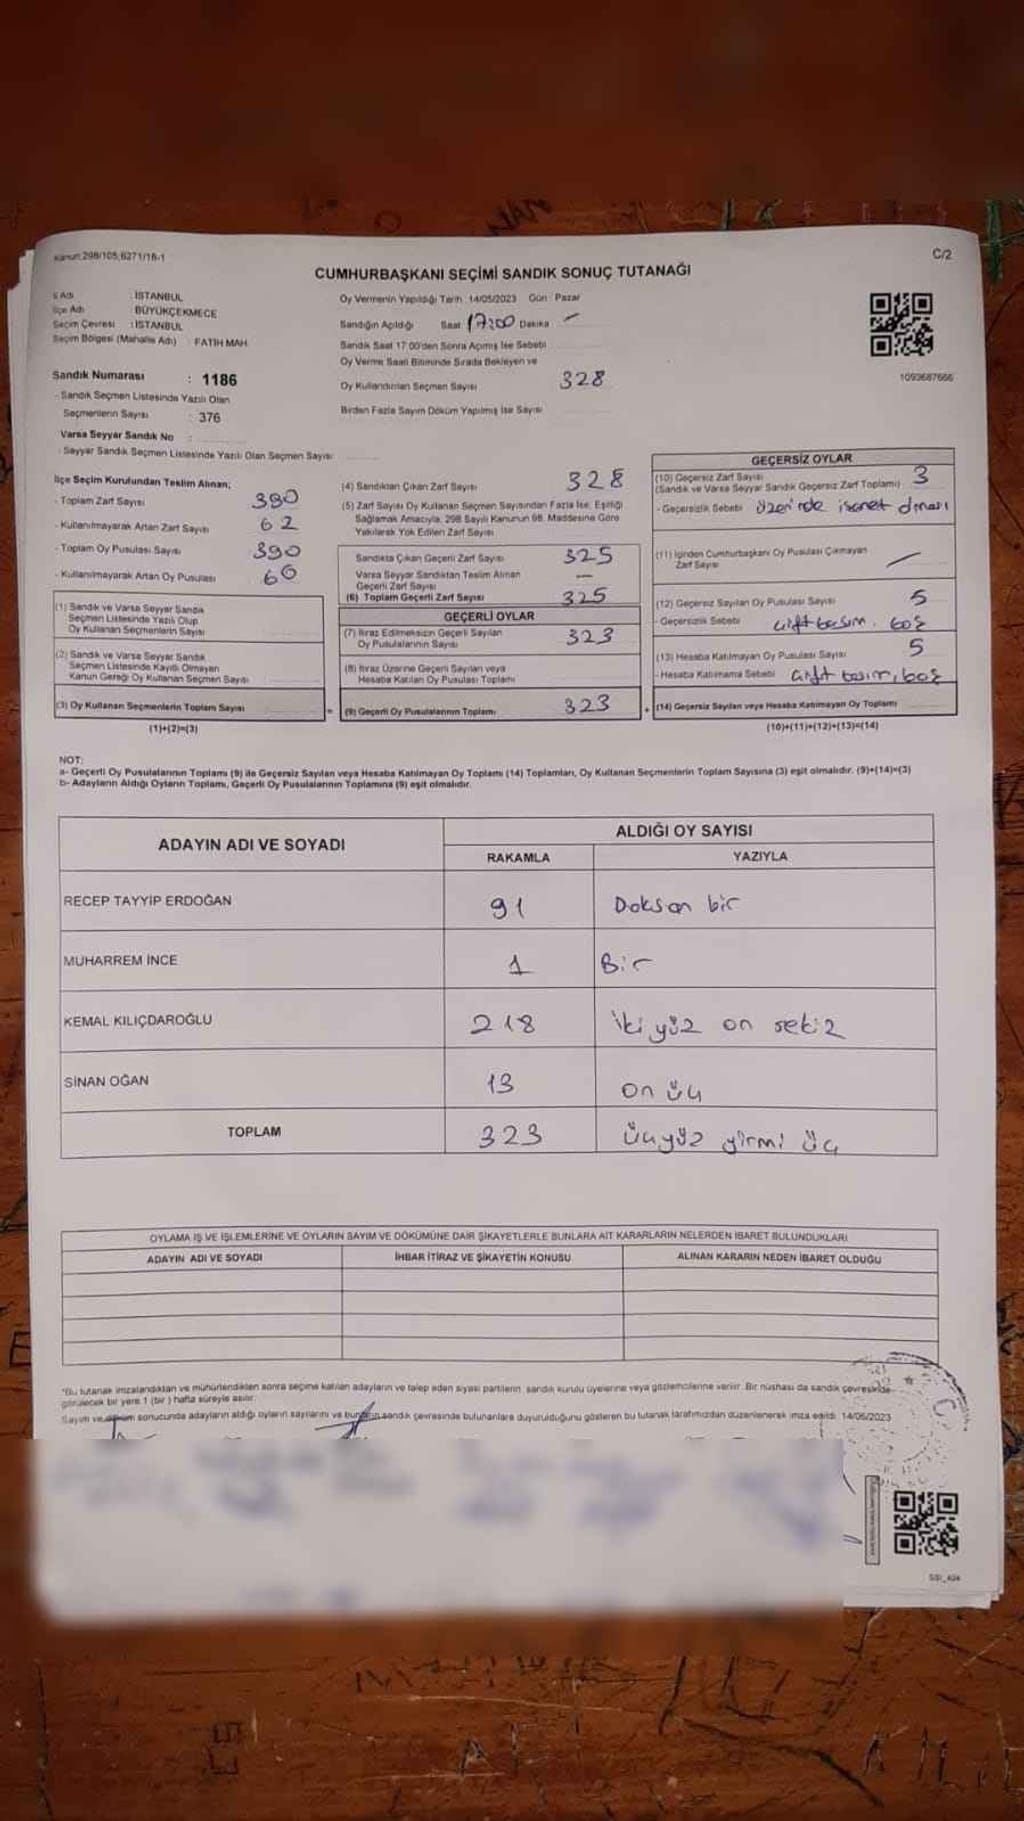 Kanun:298/105,6271/18-1
C/2
CUMHURBAŞKANI SEÇİMİ SANDIK SONUÇ TUTANAĞI
İl Adı : İSTANBUL
İlçe Adı : BÜYÜKÇEKMECE
Seçim Çevresi : İSTANBUL
Seçim Bölgesi (Mahalle Adı) FATİH MAH.
Sandık Numarası : 1186
- Sandık Seçmen Listesinde Yazılı Olan
Seçmenlerin Sayısı : 376
Varsa Seyyar Sandık No :
- Seyyar Sandık Seçmen Listesinde Yazılı Olan Seçmen Sayısı
Oy Vermenin Yapıldığı Tarih :14/05/2023 Gün : Pazar
Sandığın Açıldığı Saat 17:00 Dakika -
Sandık Saat 17:00'den Sonra Açımış İse Sebebi
Oy Verme Saati Bitiminde Sırada Bekleyen ve
Oy Kullandırılan Seçmen Sayısı 328
Birden Fazla Sayım Döküm Yapılmış İse Sayısı
1093687666
İlçe Seçim Kurulundan Teslim Alınan;
- Toplam Zarf Sayısı 390
- Kullanılmayarak Artan Zarf Sayısı 62
- Toplam Oy Pusulası Sayısı 390
- Kullanılmayarak Artan Oy Pusulası 60
(1) Sandık ve Varsa Seyyar Sandık
Seçmen Listesinde Yazılı Olup
Oy Kullanan Seçmenlerin Sayısı
(2) Sandık ve Varsa Seyyar Sandık
Seçmen Listesinde Kayıtlı Olmayan
Kanun Gereği Oy Kullanan Seçmen Sayısı
(3) Oy Kullanan Seçmenlerin Toplam Sayısı
(1)+(2)=(3)
(4) Sandıktan Çıkan Zarf Sayısı 328
(5) Zarf Sayısı Oy Kullanan Seçmen Sayısından Fazla İse, Eşitliği
Sağlamak Amacıyla, 298 Sayılı Kanunun 98. Maddesine Göre
Yakılarak Yok Edilen Zarf Sayısı
Sandıkta Çıkan Geçerli Zarf Sayısı 325
Varsa Seyyar Sandıktan Teslim Alınan
Geçerli Zarf Sayısı —
(6) Toplam Geçerli Zarf Sayısı 325
GEÇERLİ OYLAR
(7) İtiraz Edilmeksizin Geçerli Sayılan
Oy Pusulalarının Sayısı 323
(8) İtiraz Üzerine Geçerli Sayılan veya
Hesaba Katılan Oy Pusulası Toplamı
= (9) Geçerli Oy Pusulalarının Toplamı 323
GEÇERSİZ OYLAR
(10) Geçersiz Zarf Sayısı 3
(Sandık ve Varsa Seyyar Sandık Geçersiz Zarf Toplamı)
- Geçersizlik Sebebi üzerinde işaret olması
(11) İçinden Cumhurbaşkanı Oy Pusulası Çıkmayan
Zarf Sayısı —
(12) Geçersiz Sayılan Oy Pusulası Sayısı 5
- Geçersizlik Sebebi çift basım. boş
(13) Hesaba Katılmayan Oy Pusulası Sayısı 5
- Hesaba Katılmama Sebebi çift basım, boş
+ (14) Geçersiz Sayılan veya Hesaba Katılmayan Oy Toplamı
(10)+(11)+(12)+(13)=(14)
NOT:
a- Geçerli Oy Pusulalarının Toplamı (9) ile Geçersiz Sayılan veya Hesaba Katılmayan Oy Toplamı (14) Toplamları, Oy Kullanan Seçmenlerin Toplam Sayısına (3) eşit olmalıdır. (9)+(14)=(3)
b- Adayların Aldığı Oyların Toplamı, Geçerli Oy Pusulalarının Toplamına (9) eşit olmalıdır.
ADAYIN ADI VE SOYADI
ALDIĞI OY SAYISI
RAKAMLA YAZIYLA
RECEP TAYYİP ERDOĞAN 91 Doksan bir
MUHARREM İNCE 1 Bir
KEMAL KILIÇDAROĞLU 218 iki yüz on sekiz
SİNAN OĞAN 13 on üç
TOPLAM 323 üçyüz yirmi üç
OYLAMA İŞ VE İŞLEMLERİNE VE OYLARIN SAYIM VE DÖKÜMÜNE DAİR ŞİKAYETLERLE BUNLARA AİT KARARLARIN NELERDEN İBARET BULUNDUKLARI
ADAYIN ADI VE SOYADI İHBAR İTİRAZ VE ŞİKAYETİN KONUSU ALINAN KARARIN NEDEN İBARET OLDUĞU
*Bu tutanak imzalandıktan ve mühürlendikten sonra seçime katılan adayların ve talep eden siyasi partilerin sandık kurulu üyelerine veya gözlemcilerine verilir. Bir nüshası da sandık çevresinde
görülecek bir yere 1 (bir) hafta süreyle asılır.
Sayım ve döküm sonucunda adayların aldığı oyların sayılarını ve bunların sandık çevresinde bulunanlara duyurulduğunu gösteren bu tutanak tarafımızdan düzenlenerek imza edildi. 14/05/2023